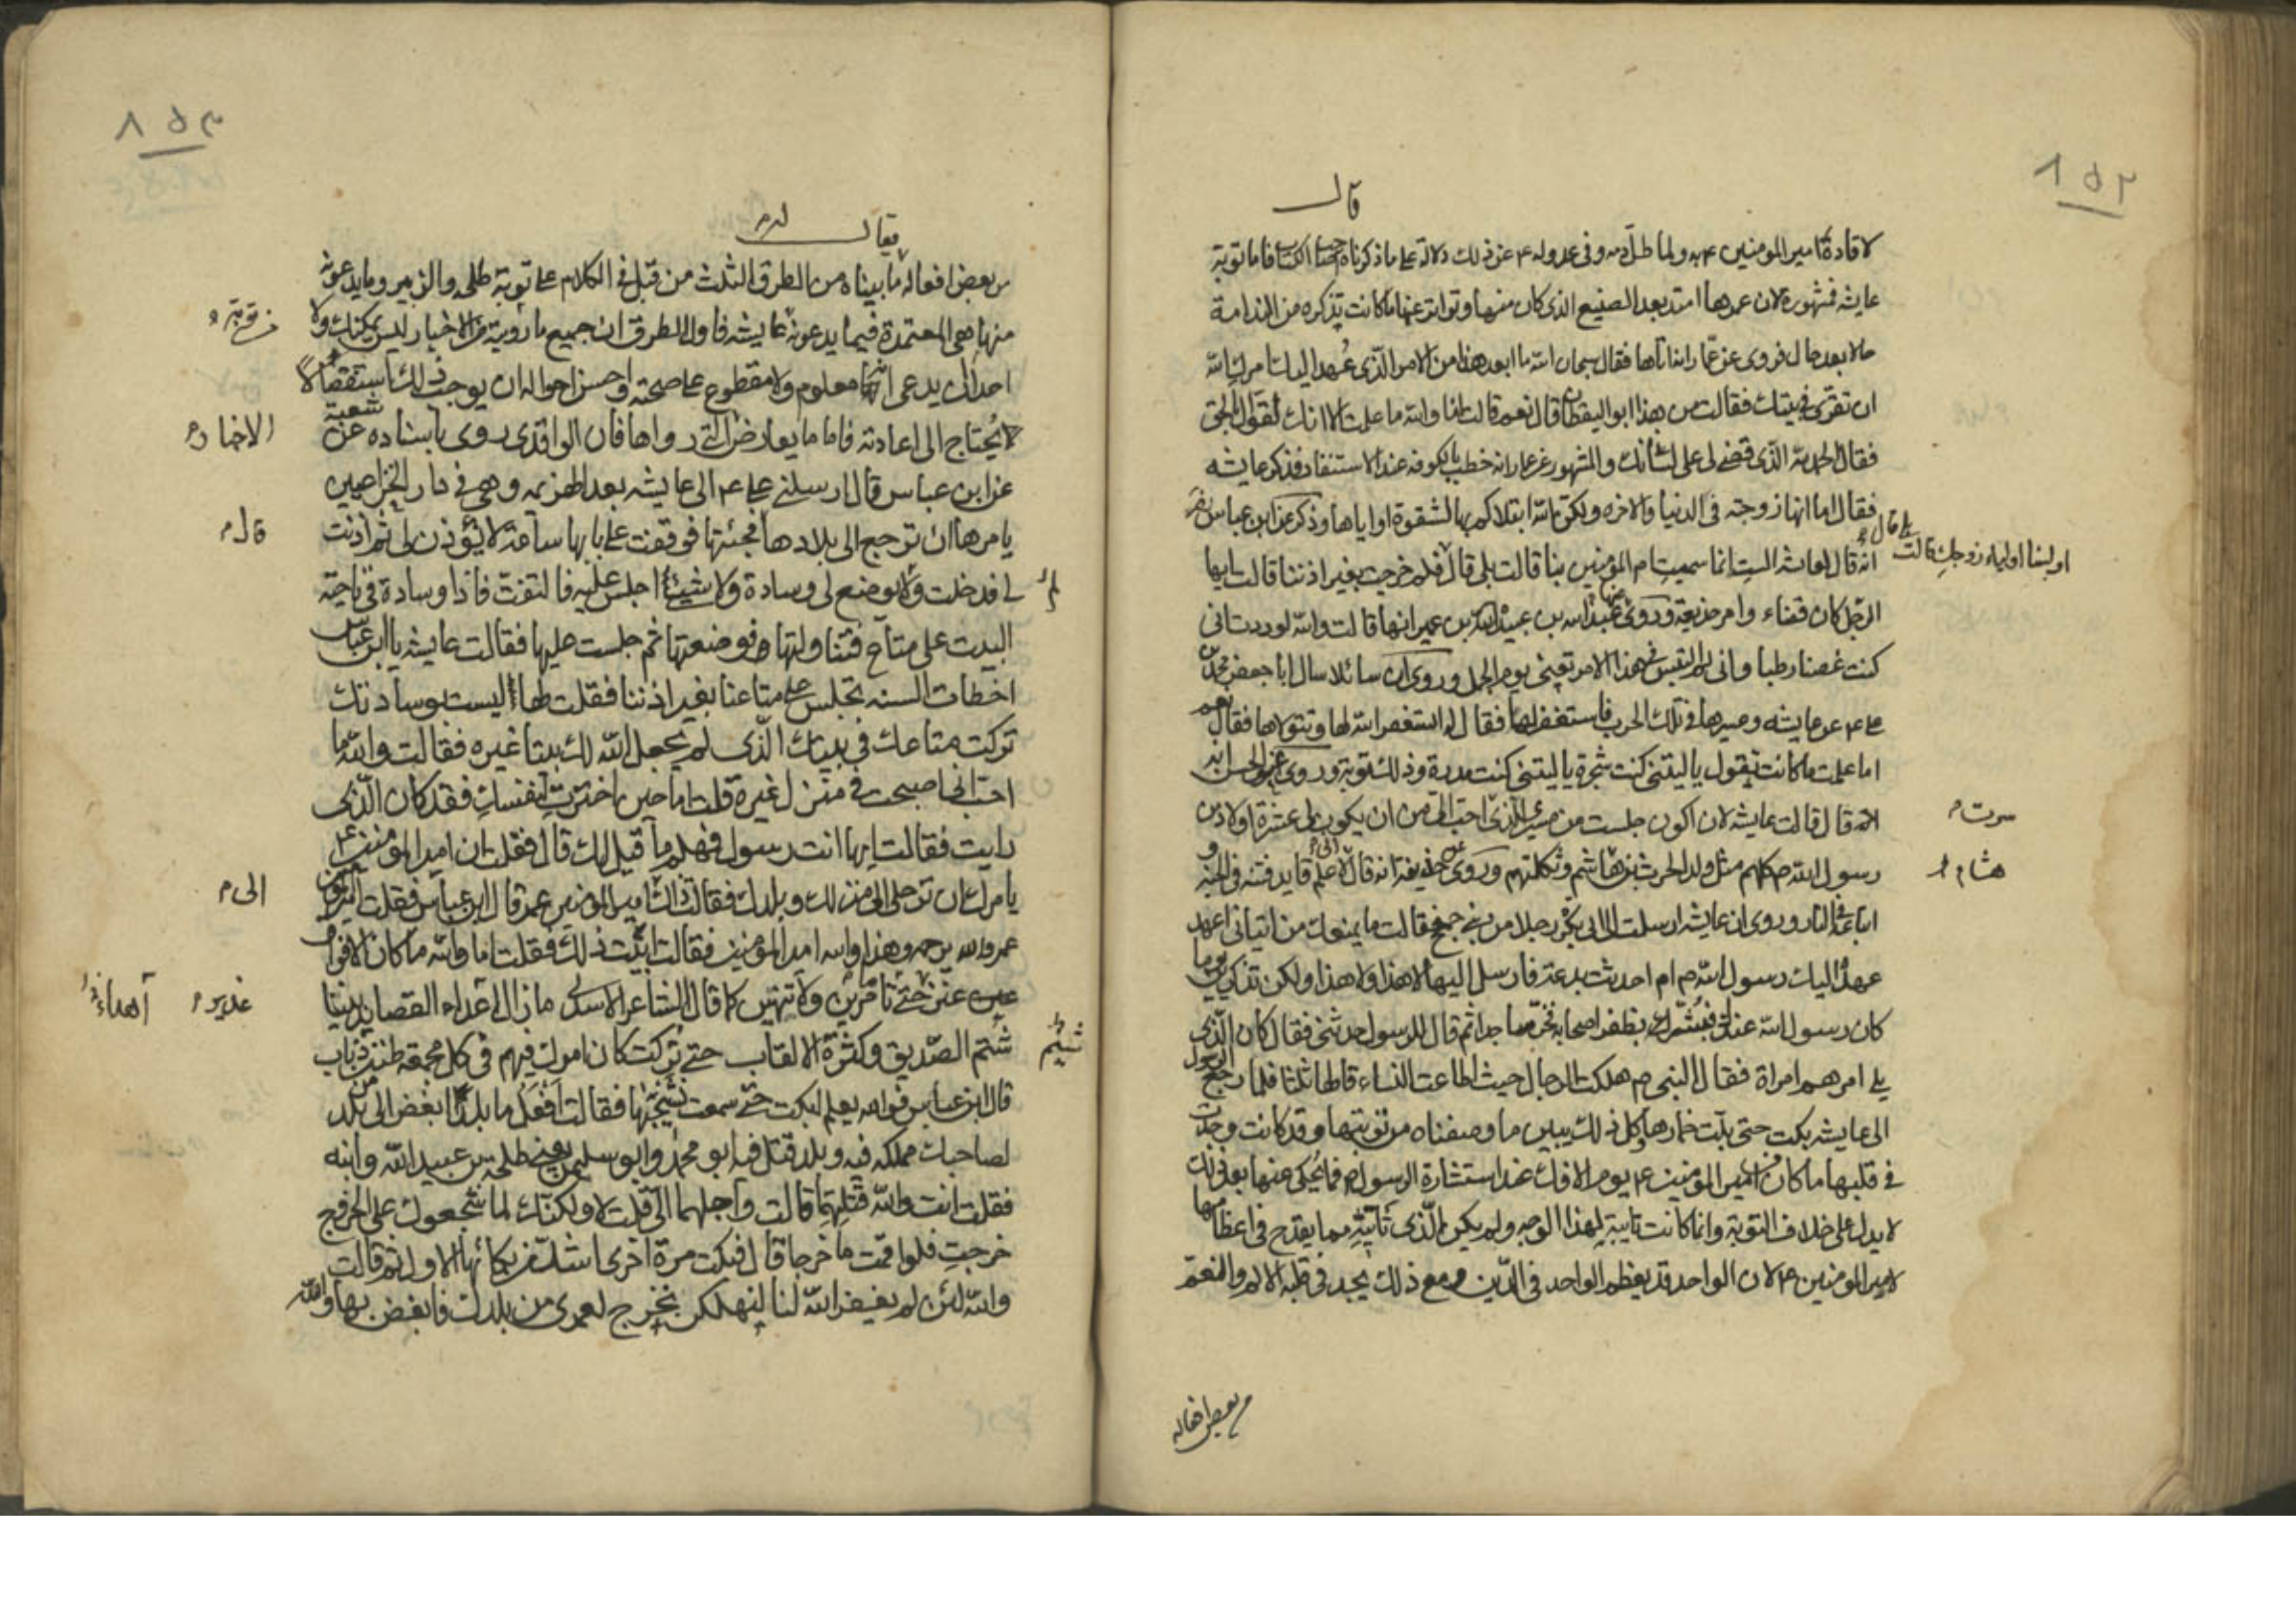 ١٥٢
قال
لاقادة امير المومنين ع به ولما طلّ دمه وفى عدوله ع عن ذلك دلالة على ما ذكرناه فاما توبة
عايشه فمشهورة لان عمرها امتد بعد الصنيع الذى كان منها وتواتر عنها ما كانت تذكره من الندامة
حالا بعد حال فروى عن عمّار انه اتاها فقال سبحان الله ما ابعد هذا من الامر الذّى عُهد اليك امرك الله
ان تقرّى فى بيتك فقالت من هذا ابو اليقظان قال نعم قالت اما والله ما علمت الا انك لقوّال بالحق
فقال الحمد لله الذّى قضى لى على لسانك والمشهور عن عمار انه خطب بالكوفه عند الاستنفار فذكر عايشه
فقال اما انها زوجته فى الدنيا والاخره ولكن الله ابتلاكم بها لتتبعوه او اياها وذكر عن ابن عباس
انه قال لعايشه الست انما سميت ام المؤمنين بنا قالت بلى قال فلم خرجت بغير اذننا قالت ايها
بلى قال اولسنا اولياء زوجك قالت
الرّجل كان قضاء وامر خديعة وروى عبد الله بن عبيد الله بن عمير انها قالت والله لوددت انى
كنت غصنا رطبا وانى لم فى هذا الامر تعنى يوم الجمل وروى ان سائلا سال ابا جعفر محمد بن
على ع عن عايشه ومسيرها فى تلك الحرب فاستغفر لها فقال له استغفر الله لها وتتولاها فقال نعم
اما علمت ما كانت تقول يا ليتنى كنت شجرة يا ليتنى كنت مدرة وذلك توبة وروى عن الحسن انه
قال قالت عايشه لان اكون جلست من مسيرى الذّى احب الىّ من ان يكون لى عشرة اولاد من
سرت
رسول الله ص كلهم مثل ولد الحرث بن هشام وثكلتهم وروى عن حذيفة انه قال لاعلم قايد فتنه فى الجنه و
هشام
اتباعه فى النار وروى ان عايشه ارسلت الى ابى بكرة رجلا من بنى جمح فقالت ما يمنعك من اتيانى اعهد
عهده اليك رسول الله ص ام احدثت بدعة فارسل اليها لا هذا ولا هذا ولكن تذكرين يوما
كان رسول الله عندك فبشّر بظفر اصحابه فخرّ ساجدا ثم قال للرسول حدثنى فقال كان الذّى
يلى امرهم امراة فقال النبى ص هلكت الرجال حيث اطاعت النساء قالها ثلثا فلما رجع الرسول
الى عايشه بكت حتى بلّت خمارها وكل ذلك يبين ما وصفناه من توبتها وقد كانت وجدت
فى قلبها ما كان من امير المؤمنين ع يوم الافك عند استشارة الرسول ص فما يُحكى عنها بعد ذلك
لا يدل على خلاف التوبة وانما كانت تايبة لهذا الوجه ولم يكن الذّى تاتيه مما يقدح فى اعظامها
لامير المومنين ع لان الواحد قد يعظم الواحد فى الدّين ومع ذلك يجد فى قلبه الالم والغم
من بعض افعاله
١٥٣
فقال له
من بعض افعاله ما بيناه من الطرق الثلث من قبل فى الكلام على توبة طلحه والزبير وما يدعونه
منها هى المعتمدة فيما يدعونه عايشه فاول الطرق ان جميع ما رويته من الاخبار ليس يمكنك ولا
من توبة
احدا ان يدعى انه معلوم ولا مقطوع على صحته واحسن احواله ان يوجب ذلك
لا يُحتاج الى اعادته فاما ما يعارض التى رواها فان الواقدى روى باسناده عن شعبة
الاخبار
عن ابن عباس قال ارسلنى على ع الى عايشه بعد الهزيمه وهى فى دار الخزاعيين
يامرها ان ترجع الى بلادها فجئتها فوقفت على بابها ساعة لا يُؤذن لى ثم اذنت
قال
لى فدخلت ولم يوضع لى وسادة ولا شئ اجلس عليه فالتفتّ فاذا وسادة فى ناحية
البيت على متاع فتناولتها فوضعتها ثم جلست عليها فقالت عايشه يا ابن عباس
اخطات السنه تجلس على متاعنا بغير اذننا فقلت لها اليست بوسادتك
تركت متاعك فى بيتك الذّى لم يجعل الله لك بيتا غيره فقالت والله ما
احب انى اصبحت فى منزل غيره قلت اما حين اخترت لنفسك فقد كان الذّى
رايت فقالت ايها انت رسول فهلم ما قيل لك قال فقلت ان امير المومنين ع
يامرك ان ترحلى الى منزلك وبلدك فقالت ذاك امير المومنين عمر قال ابن عباس فقلت امير المومنين
الى
عمر والله يرحمه وهذا والله امير المؤمنين فقالت ابيت ذلك فقلت اما والله ما كان الا فواق
عنز حتى تامرين ولا تنهين كما قال الشاعر الاسدى ما زال اعداء القصايد بيننا
غدير اهداء
شتم الصّديق وكثرة الالقاب حتى تركت كان امرك فيهم فى كل مجمعه طنين ذباب
شتيم
قال ابن عباس فوالله يعلم لبكت حتى سمعت نشيجها فقالت افعل ما بلد ابغض الى من بلد
لصاحبك مملكه فيه وبلد قتل فيه ابو محمد وابو سليمن يعنى طلحة بن عبيد الله وابنه
فقلت انت والله قتلتهما قالت واجلهما الىّ قلت لا ولكنك لما شجعوك على الخروج
خرجت فلو اقمت ما خرجا قال فبكت مرة اخرى اشد من بكائها الاول ثم قالت
والله لئن لم يغفر الله لنا لنهلكن نخرج لعمرى من بلدك فابغض بها والله